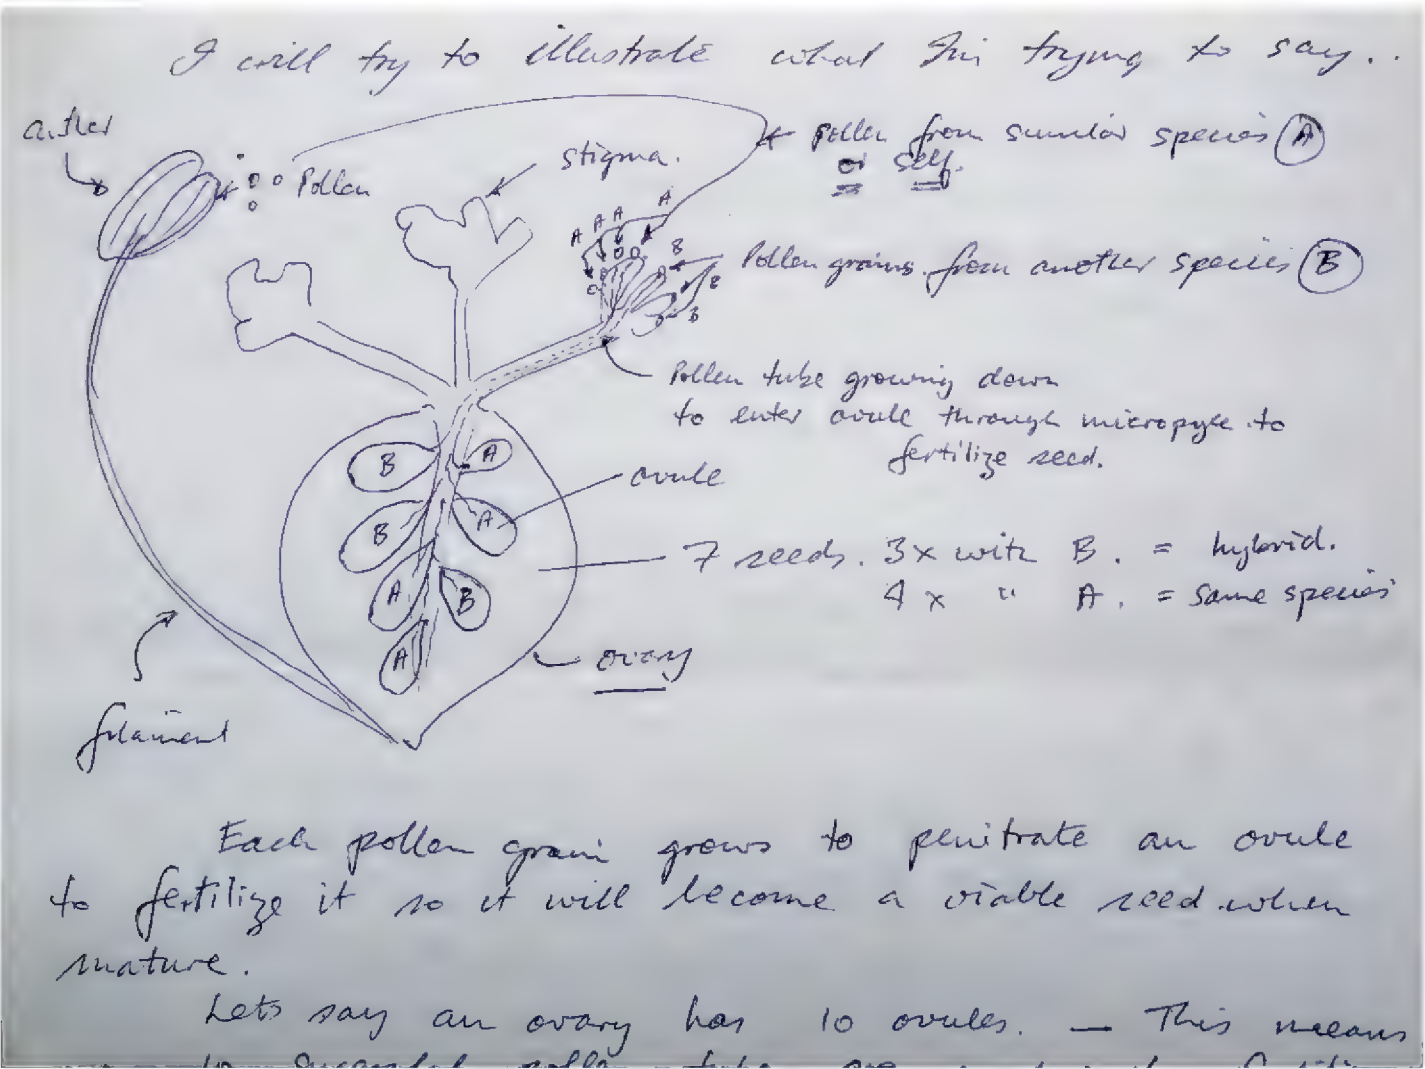 I will try to illustrate what I'm trying to say..
anther
Pollen
stigma.
Pollen from similar species A
or self.
A A A A
B
B
B
Pollen grains from another species B
Pollen tube growing down
to enter ovule through micropyle to
fertilize seed.
B A
ovule
B A
7 seeds. 3x with B. = hybrid.
4 x " A. = same species
A B
A
ovary
filament
Each pollen grain grows to penitrate an ovule
to fertilize it so it will become a viable seed when
mature.
Lets say an ovary has 10 ovules. — This means
10 successful pollen tubes are